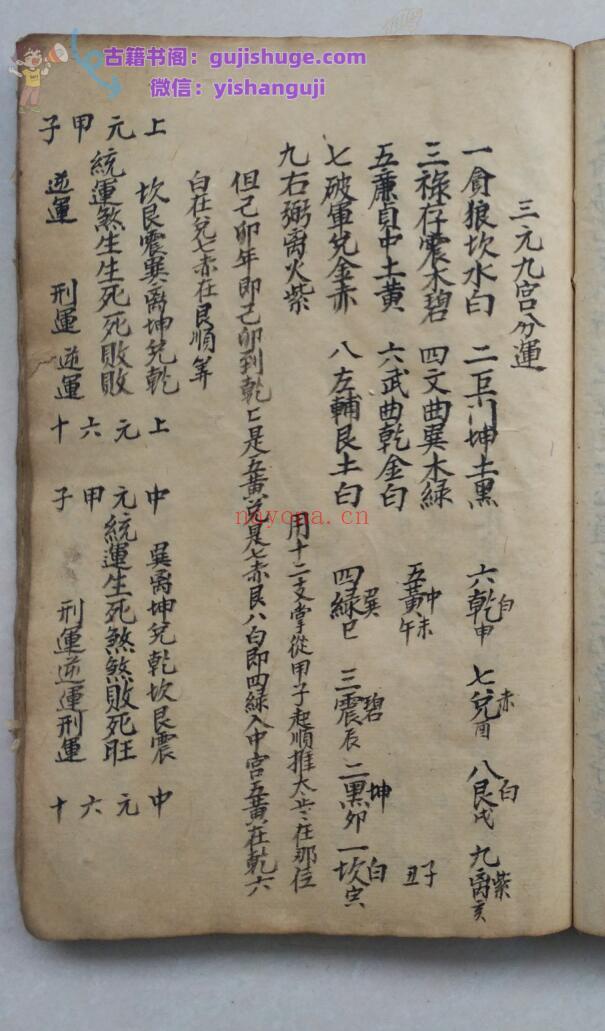 古籍书阁：gujishuge.com
微信：yishanguji
三元九宮分運
一貪狼坎水白 二巨门坤土黑
三祿存震木碧 四文曲巽木綠
五廉貞中土黃 六武曲乾金白
七破軍兌金赤 八左輔艮土白
九右弼离火紫
六白乾申 七赤兌酉 八白艮戌 九紫离亥
五黃中午未 子丑
四綠巽巳 三碧震辰 二黑坤卯 一白坎寅
用十二支掌從甲子起順推太岁在那位
但己卯年即己卯到乾上是五黃兌是七赤艮八白即四綠入中宮五黃在乾六
白在兌七赤在艮順筭
上元甲子
坎艮震巽离坤兌乾
統運煞生生死死敗敗
逆運 刑運 逆運
上元六十
中元甲子
巽离坤兌乾坎艮震
統運生死煞煞敗死旺
刑運逆運刑運
中元六十
nayona.cn